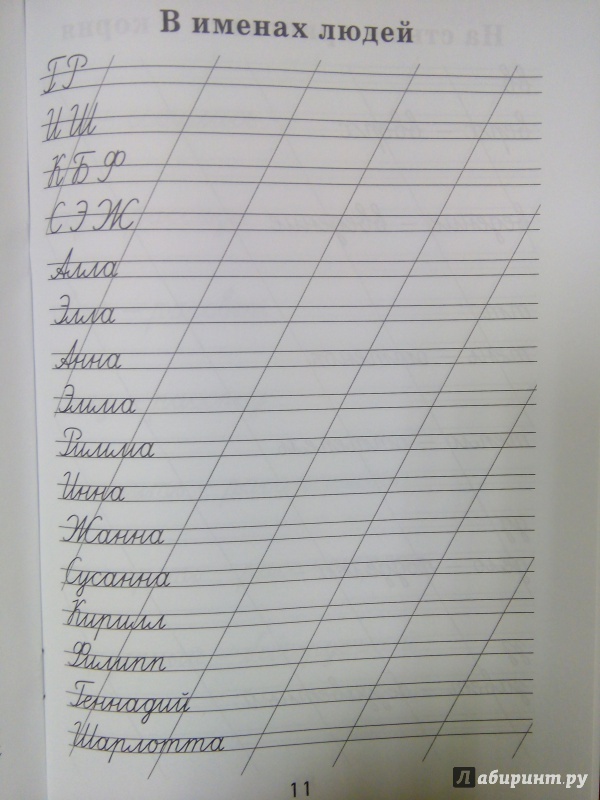 В именах людей
Г Р
И Ш
К Б Ф
С Э Ж
Алла
Элла
Анна
Эмма
Римма
Инна
Жанна
Сусанна
Кирилл
Филипп
Геннадий
Шарлотта
11
Лабиринт.ру